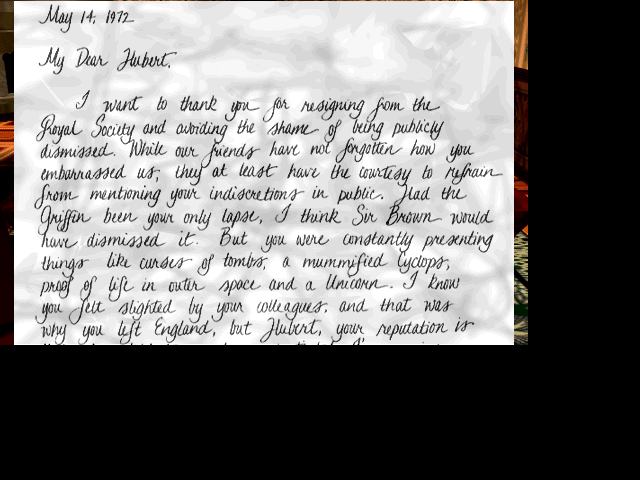 May 14, 1972
My Dear Hubert,
I want to thank you for resigning from the
Royal Society and avoiding the shame of being publicly
dismissed. While our friends have not forgotten how you
embarrassed us, they at least have the courtesy to refrain
from mentioning your indiscretions in public. Had the
Griffin been your only lapse, I think Sir Brown would
have dismissed it. But you were constantly presenting
things like curses of tombs, a mummified Cyclops,
proof of life in outer space and a Unicorn. I know
you felt slighted by your colleagues, and that was
why you left England, but Hubert, your reputation is